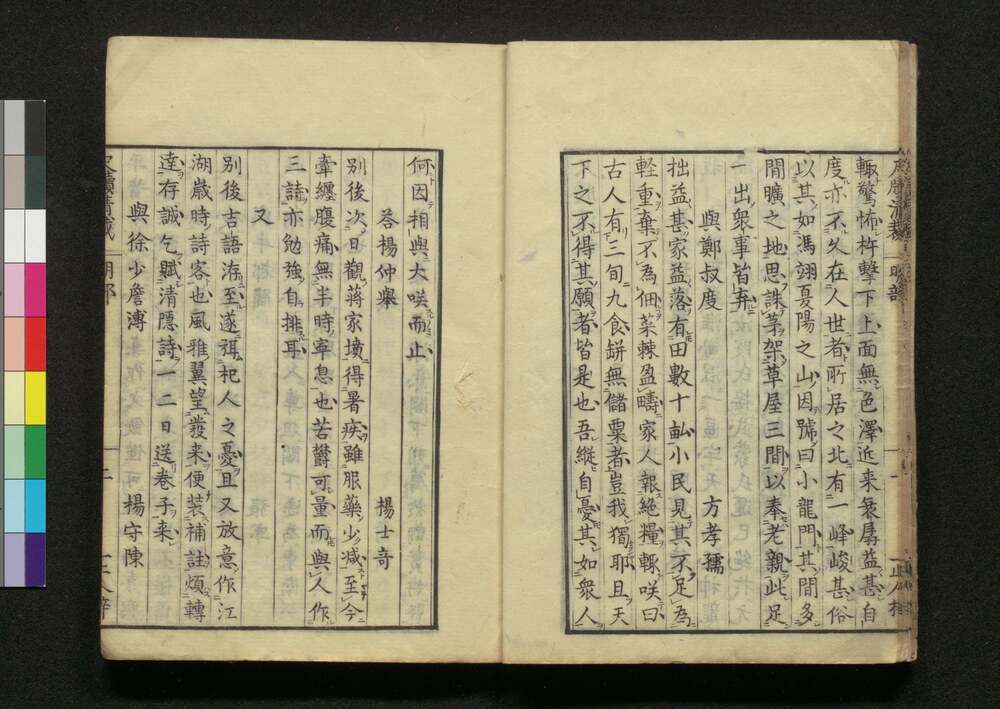 輙驚怖杵擊下上面無色澤近来衰孱益甚自
度亦不久在人世者所居之北有一峰峻甚俗
以其如馮翊夏陽之山因號曰小龍門其間多
閒曠之地思誅茅架草屋三間以奉老親此足
一出衆事皆弃
與鄭叔度　方孝孺
拙益甚家益落有田數十畝小民見其不足為
軽重棄不為佃菜棘盈疇家人報絶糧輙咲曰
古人有三旬九食缾無儲粟者豈我獨耶且天
下之不得其願者皆是也吾縦自憂其如衆人
何因相與大咲而止
答楊仲舉　楊士奇
別後次日觀蒋家墳得暑疾雖服藥少減至今
牽纏腹痛無半時寧息也苦欝可量而與人作
三誌亦勉強自排耳
又
別後吉語洊至遂弭杞人之憂且又放意作江
湖歳時詩客也風雅翼望發来便装補註煩轉
逹存誠乞賦清隠詩一二日送巻子来
與徐少詹溥　楊守陳